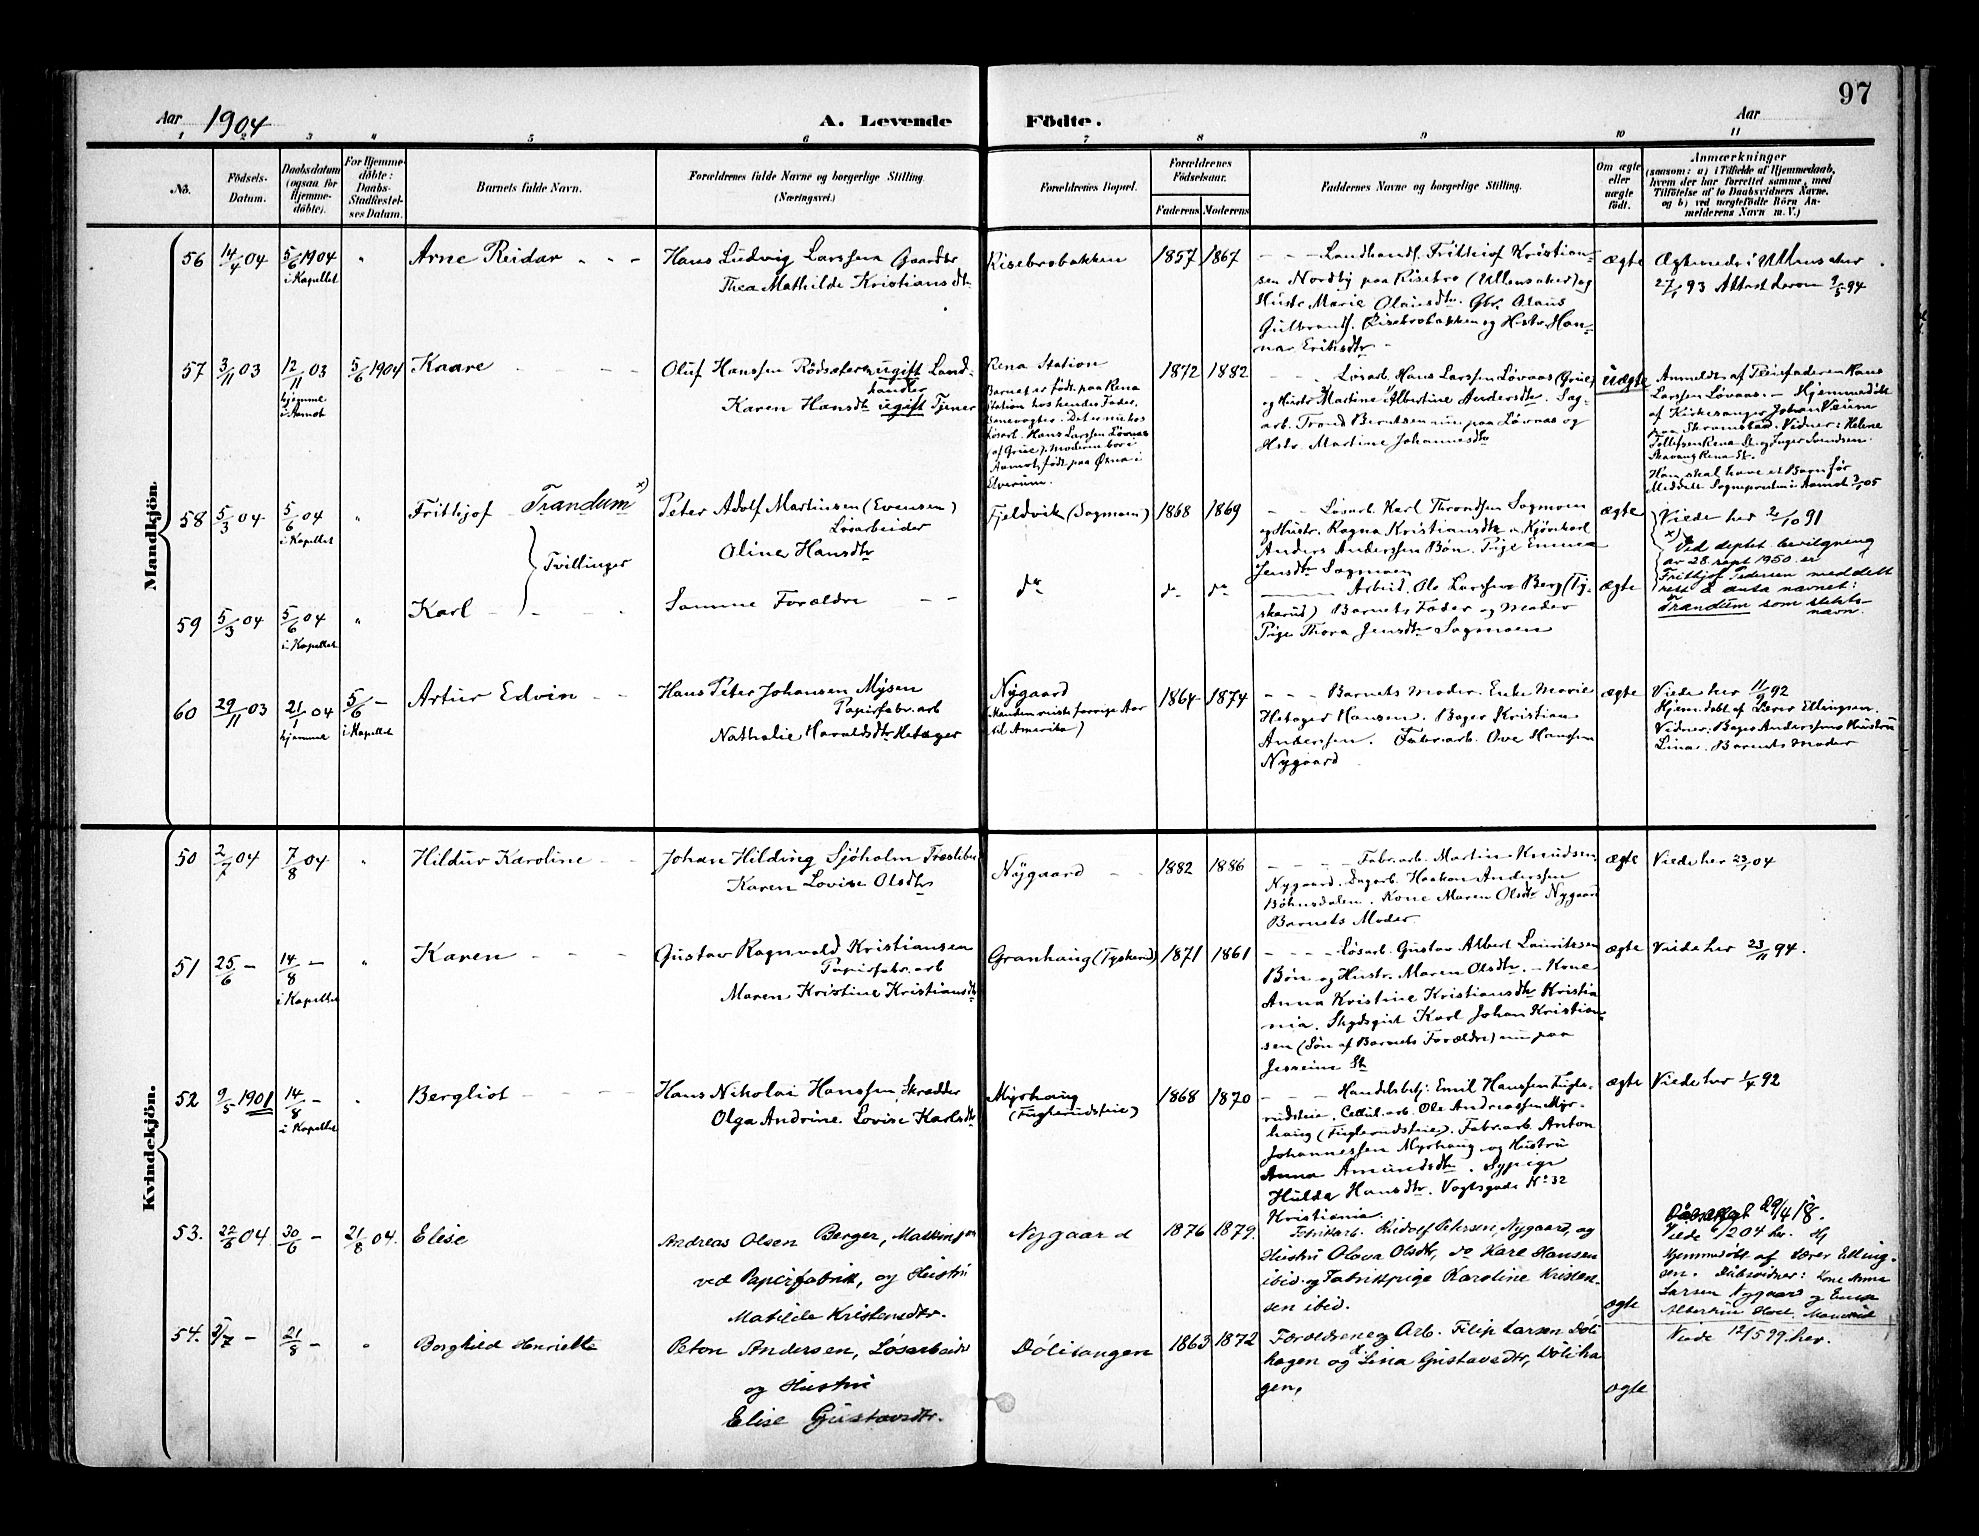 97
Aar 1904
A. Levende Födte.
Aar
1 2 3 4 5 6 7 8 9 10 11
No.
Födsels-Datum.
Daabsdatum (ogsaa for Hjemmedöbte).
For Hjemmedöbte: Daabs-Stadfæstelses Datum.
Barnets fulde Navn.
Forældrenes fulde Navne og borgerlige Stilling (Næringsvei.)
Forældrenes Bopæl.
Forældrenes Födselsaar.
Faderens Moderens
Faddernes Navne og borgerlige Stilling.
Om ægte eller uægte födt.
Anmærkninger
(saasom: a) i Tilfælde af Hjemmedaab,
hvem der har forrettet samme, med
Tilföielse af to Daabsvidners Navne,
og b) ved uægtefödte Börn An-
melderens Navn m. V.)
Mandkjön.
56 14/4 04 5/6 1904 i Kapellet " Arne Reidar
Hans Ludvig Larssen Gaardbr
Thea Mathilde Kristiansdtr
Risebrobakken 1857 1867
Landhandl. Frithjof Kristian-
sen Nordby paa Risebro (Ullensaker) og
Hustr Marie Olausdtr. Gbr. Olaus
Gulbrands. Risebrobakken og Hstr. Han-
na Eriksdtr
ægte
Ægteviede i Ullensaker
27/1 93 Attest derom 9/5 94
57 3/11 03 12/11 03 hjemme i Aamot 5/6 1904 Kaare
Oluf Hanssen Rödsæteren ugift Land-
handler
Karen Hansdtr ugift Tjener
Rena Station
Barnet er födt paa Rena
Station hos hendes Fader,
Banevogter. Det er nu hos
Lösarb. Hans Larssen Lövaas
(af Grue). Moderen bor i
Aamot, födt paa i
Elverum.
1872 1882
Lösarb. Hans Larssen Lövaas (Grue)
og Hustr Martine Albertine Andersdtr. Sag-
arb. Trond Berntsen nu paa Lövaas og
Hstr. Martine Johannesdtr
uægte
Anmeldt af Pleiefaderen Hans
Larssen Lövaas. – Hjemmedöbt
af Kirkesanger Johan Veum
paa Skramstad. Vidner: Helene
Tollefsen Rena St. og Inger Lundsen
Rena St.
Han skal have et Barn för
Meddelt Sognepresten i Aamot 05
58 5/3 04 5/6 04 i Kapellet " Frithjof Trandum x)
Tvillinger
Peter Adolf Martinsen (Evensen)
Lösarbeider
Oline Hansdtr
Fjeldvik (Sagmoen) 1868 1869
Lösarb. Karl Throndsen Sagmoen
og Hustr. Ragna Kristiansdtr. Kjörekarl
Anders Anderssen Bön. Pige Emma
Jensdtr Sagmoen
ægte
Viede her 2/10 91
x) Ved deptets bevilgning
av 28. sept 1950 er
Frithjof Pedersen meddelt
rett å anta navnet:
Trandum som slekts-
navn.
59 5/3 04 5/6 04 i Kapellet " Karl
Samme Forældre
do do do
Arbeid. Ole Larssen Berg (Ty-
skerud) Barnets Fader og Moder
Pige Thora Jensdtr Sagmoen
ægte
60 29/11 03 21/1 04 hjemme 5/6 – i Kapellet Artur Edvin
Hans Peter Johansen Mysen
Papirfabr.arb
Nathalie Haraldsdtr Hetager
Nygaard
(Manden reiste forrige Aar
til Amerika)
1864 1874
Barnets Moder. Enke Marie
Hetager Hansen. Bager Kristian
Anderssen. Fabr.arb. Ove Hanssen
Nygaard
ægte
Viede her 11/9 92
Hjem.döbt af Lærer Ellingsen.
Vidner: Bager Anderssens Hustru
Lina. Barnets Moder
Kvindekjön.
50 2/7 04 7/8 04 " Hildur Karoline
Johan Hilding Sjöholm Træsliber
Karen Lovise Olsdtr
Nygaard 1882 1886
Fabr.arb. Martin Knudsen
Nygaard. Dagarb. Haakon Anderssen
Böhnsdalen. Kone Maren Olsdtr Nygaard
Barnets Moder.
ægte
Viede her 23/1 04
51 25/6 – 14/8 – i Kapellet " Karen
Gustav Ragnvald Kristiansen
Papirfabr.arb
Maren Kristine Kristiansdtr
Granhaug (Tyskerud) 1871 1861
Lösarb. Gustav Albert Lauritssen
Bön og Hustr. Maren Olsdtr. – Kone
Anna Kristine Kristiansdtr Kristia-
nia. Skydsgut Karl Johan Kristian-
sen (Sön af Barnets Forældre) nu paa
Jessheim St.
ægte
Viede her 23/11 94.
52 9/5 1901 14/8 – i Kapellet " Bergliot
Hans Nikolai Hanssen Skrædder
Olga Andrine Lovise Karlsdtr
Myrhaug
(Fuglerudsteie)
1868 1870
Handelsbetj. Emil Hanssen Fugle-
rudsteie. Cellul.arb. Ole Andreassen Myr-
haug (Fuglerudsteie). Fabr.arb. Anton
Johannessen Myrhaug og Hustru
Anna Amundsdtr. Sypige
Hulda Hansdtr. Vogtsgade No 32
Kristiania.
ægte
Viede her 1/4 92
53. 22/6 04 30/6 – 21/8 04. Elise
Andreas Olsen Berger, Maskinm
ved Papirfabrik, og Hustru
Matilde Kristiansdtr.
Nygaard 1876 1879
Fabrikarb. Rudolf Petersen, Nygaard, og
Hustru Olava Olsdtr, do Karl Hansen
ibid. og Fabrikspige Karoline Kristen-
sen ibid.
ægte
29/4 18.
Viede 6/2 04 her. Hj
Hjemmedöbt af Lærer Elling-
sen. Daabsvidner: Kone Anna
Larsen Nygaard og Enke
Albertine
54. 3/7 – 21/8 – " Borghild Henriette
Peton Andersen, Lösarbeider
og Hustru
Elise Gustavsdtr.
Dölisangen 1863 1872
Forældrene og Arb. Filip Larsen Döli-
hagen og Lina Gustavsdtr, Döliha-
gen,
ægte
Viede 12/5 99 her.